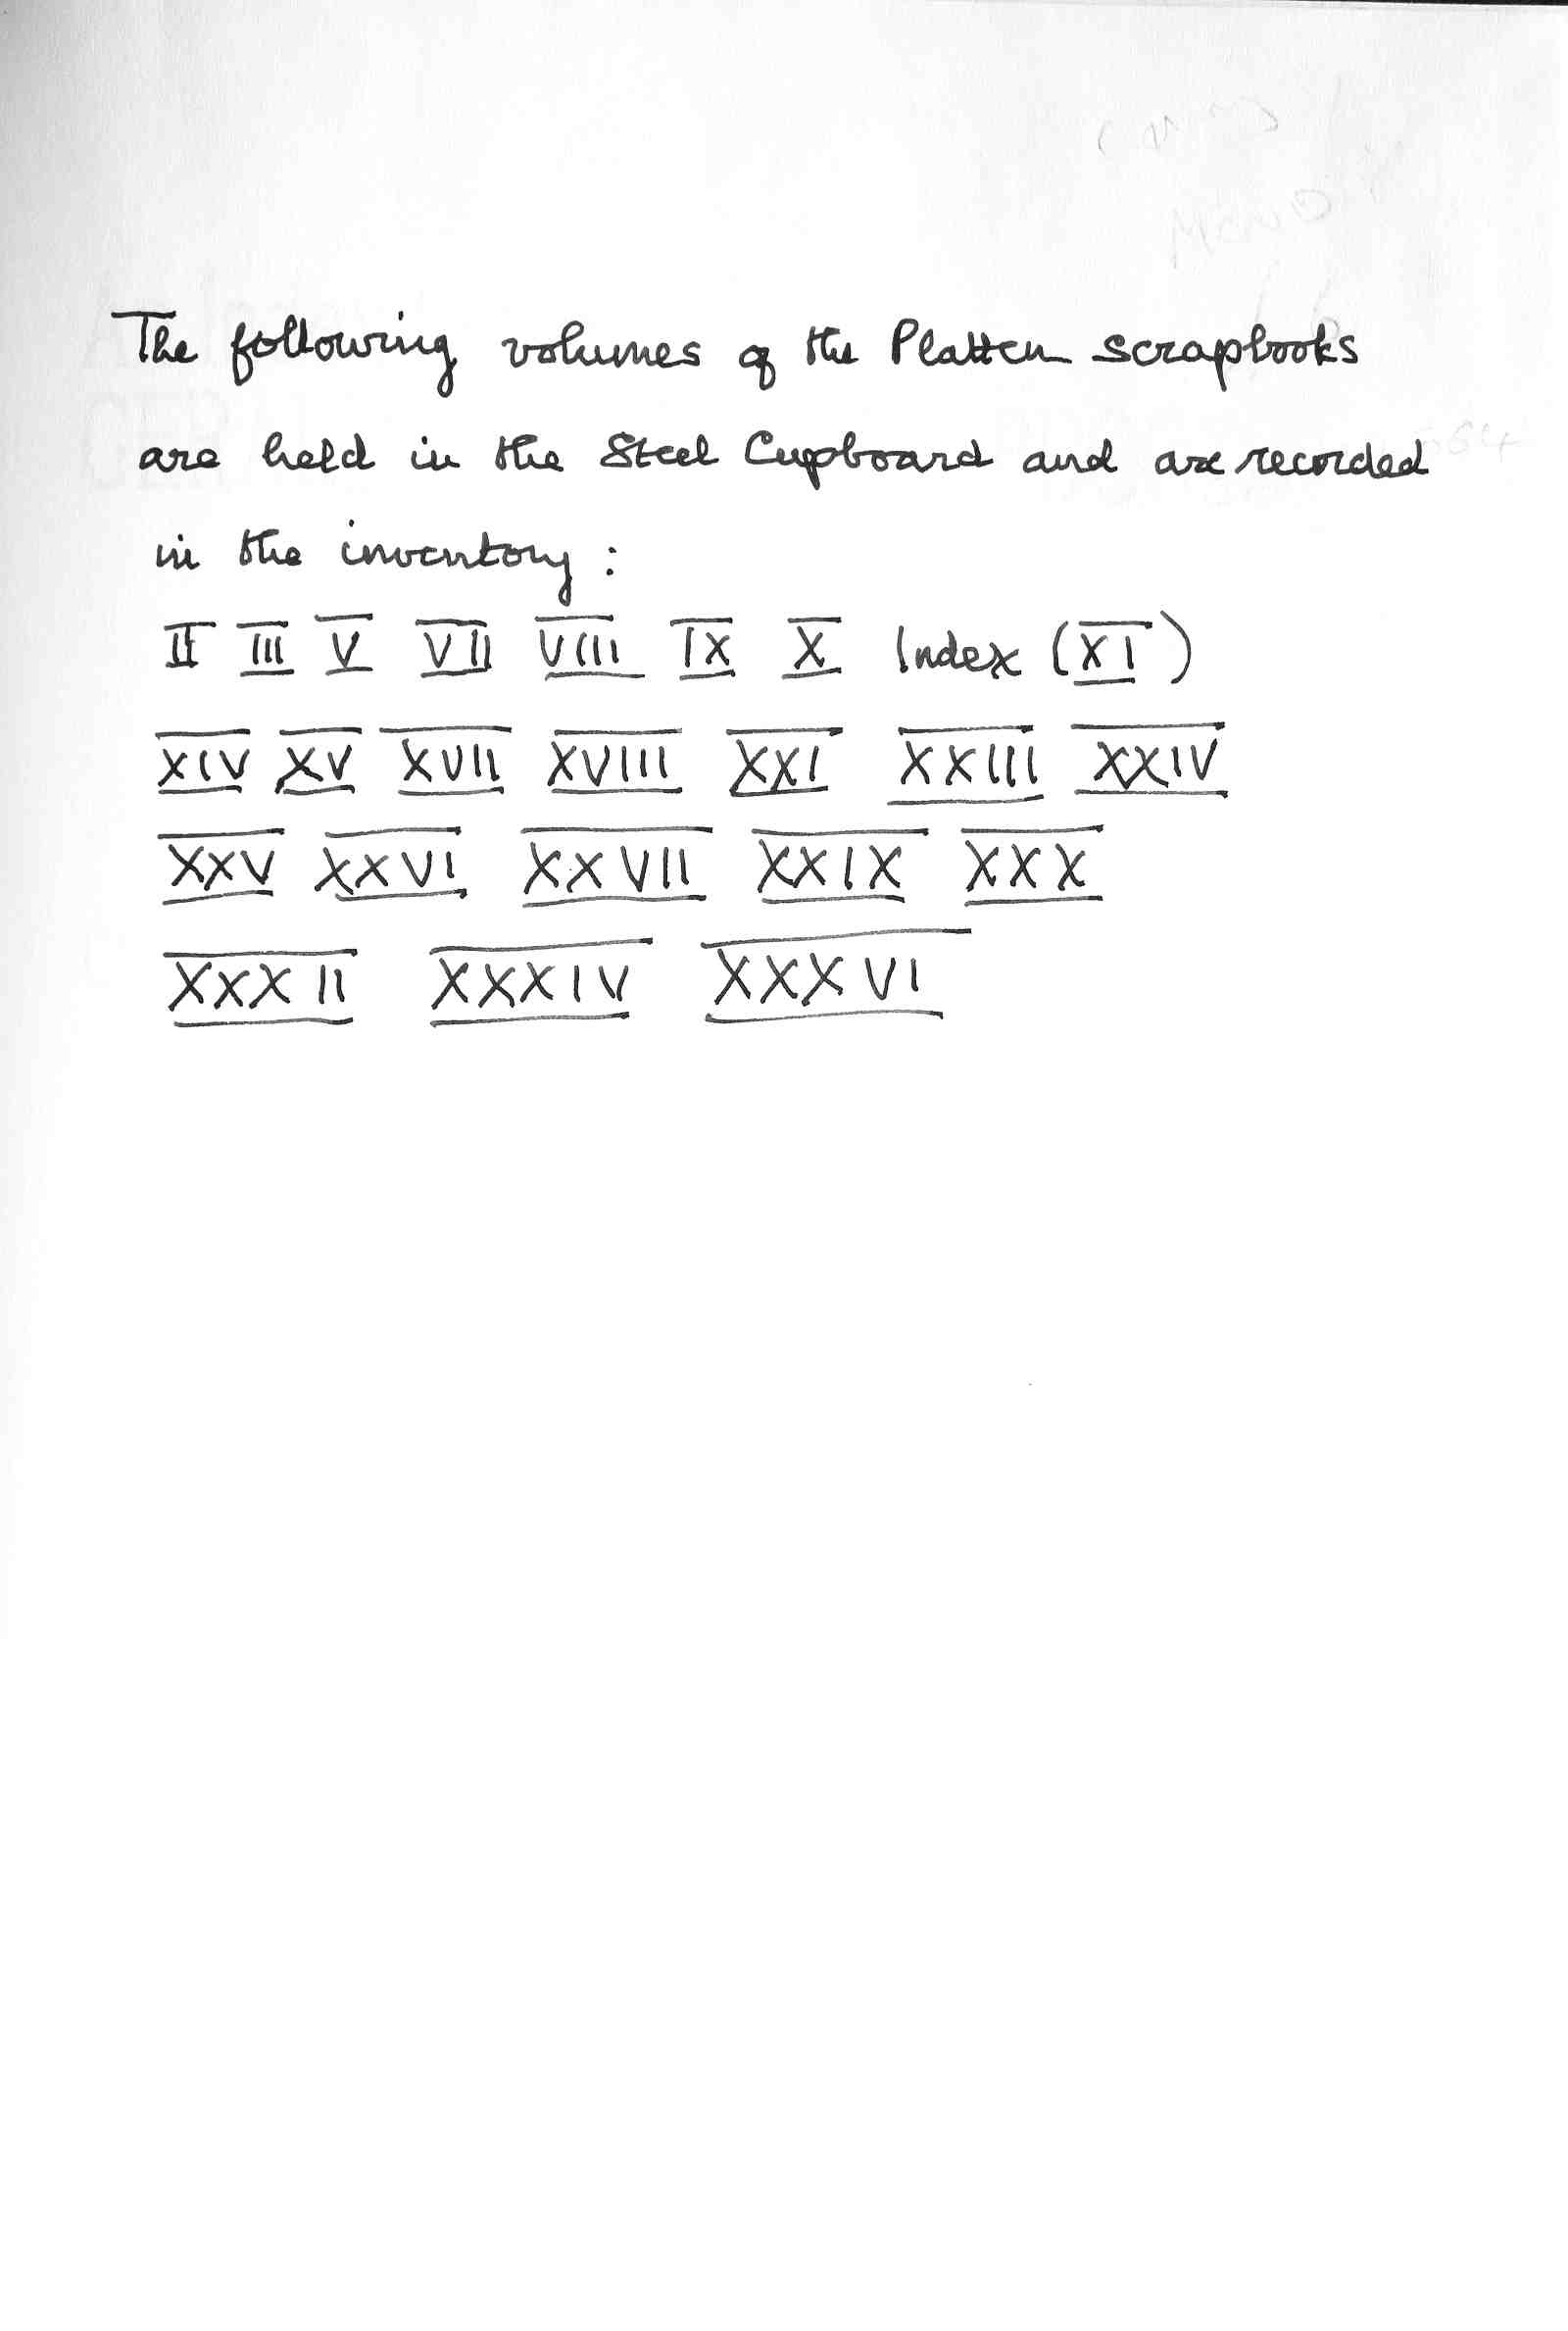 The following volumes of the Platten scrapbooks
are held in the Steel Cupboard and are recorded
in the inventory :
II III V VII VIII IX X Index (XI)
XIV XV XVII XVIII XXI XXIII XXIV
XXV XXVI XXVII XXIX XXX
XXXII XXXIV XXXVI